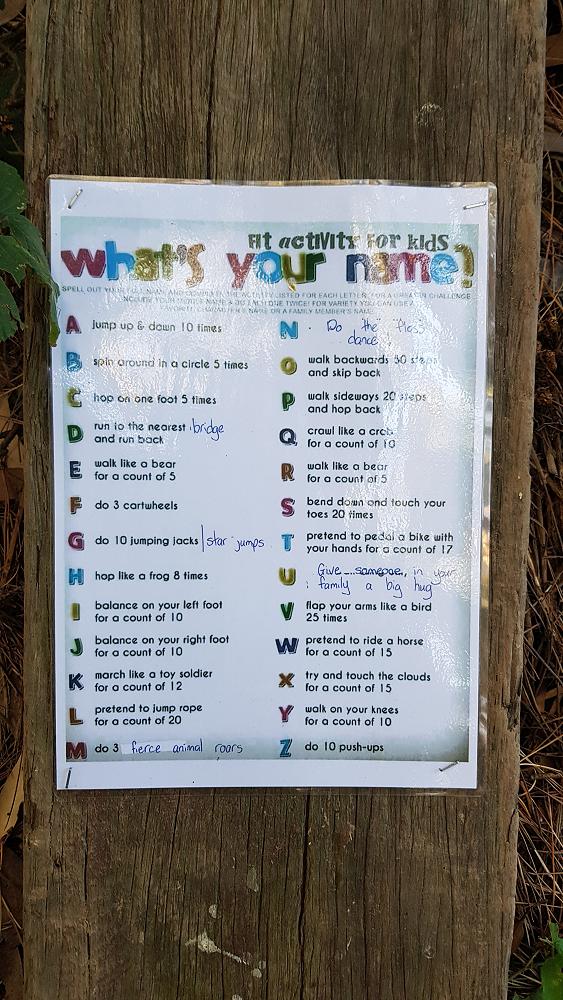 Fit activity for kids
what's your name?
SPELL OUT YOUR FULL NAME AND COMPLETE THE ACTIVITY LISTED FOR EACH LETTER. FOR A GREATER CHALLENGE
INCLUDE YOUR MIDDLE NAME & DO EACH ONE TWICE! FOR VARIETY YOU CAN USE A
FAVORITE CHARACTER'S NAME OR A FAMILY MEMBER'S NAME.
A jump up & down 10 times
B spin around in a circle 5 times
C hop on one foot 5 times
D run to the nearest bridge
and run back
E walk like a bear
for a count of 5
F do 3 cartwheels
G do 10 jumping jacks | star jumps
H hop like a frog 8 times
I balance on your left foot
for a count of 10
J balance on your right foot
for a count of 10
K march like a toy soldier
for a count of 12
L pretend to jump rope
for a count of 20
M do 3 fierce animal roars
N Do the "floss"
dance
O walk backwards 50 steps
and skip back
P walk sideways 20 steps
and hop back
Q crawl like a crab
for a count of 10
R walk like a bear
for a count of 5
S bend down and touch your
toes 20 times
T pretend to pedal a bike with
your hands for a count of 17
U Give someone, in your
family a big hug
V flap your arms like a bird
25 times
W pretend to ride a horse
for a count of 15
X try and touch the clouds
for a count of 15
Y walk on your knees
for a count of 10
Z do 10 push-ups